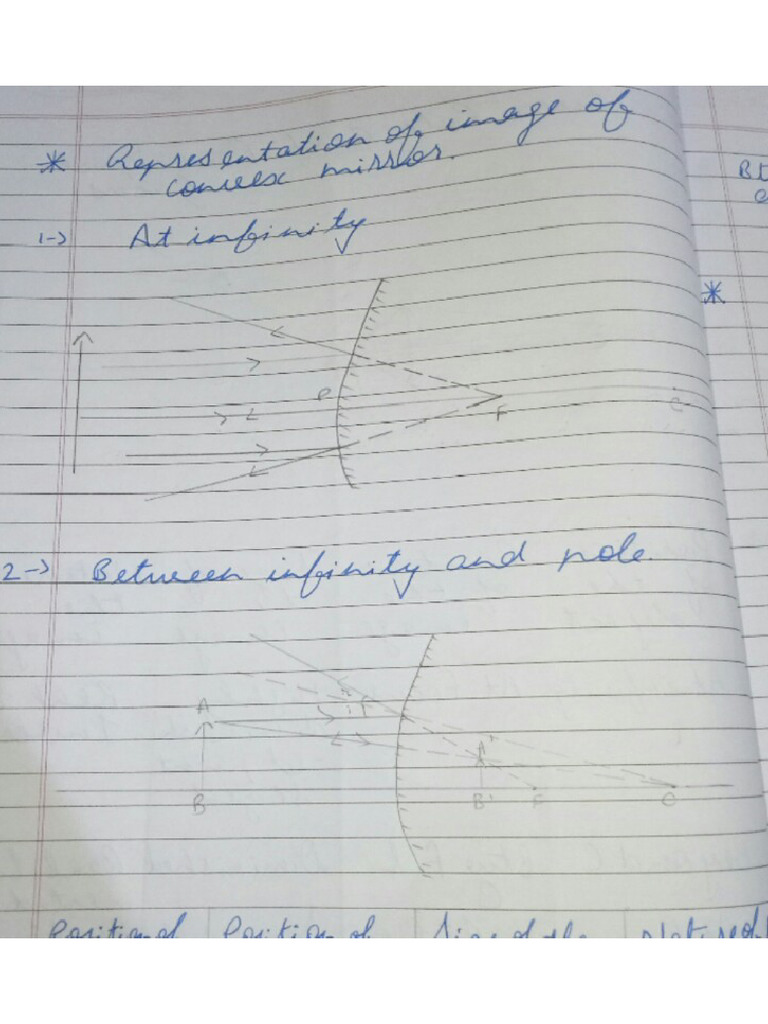 * Representation of image of
convex mirror.
1-> At infinity
*
P
F
C
2-> Between infinity and pole.
A
A'
B
B'
F
C
Position of
Position of
Size of the